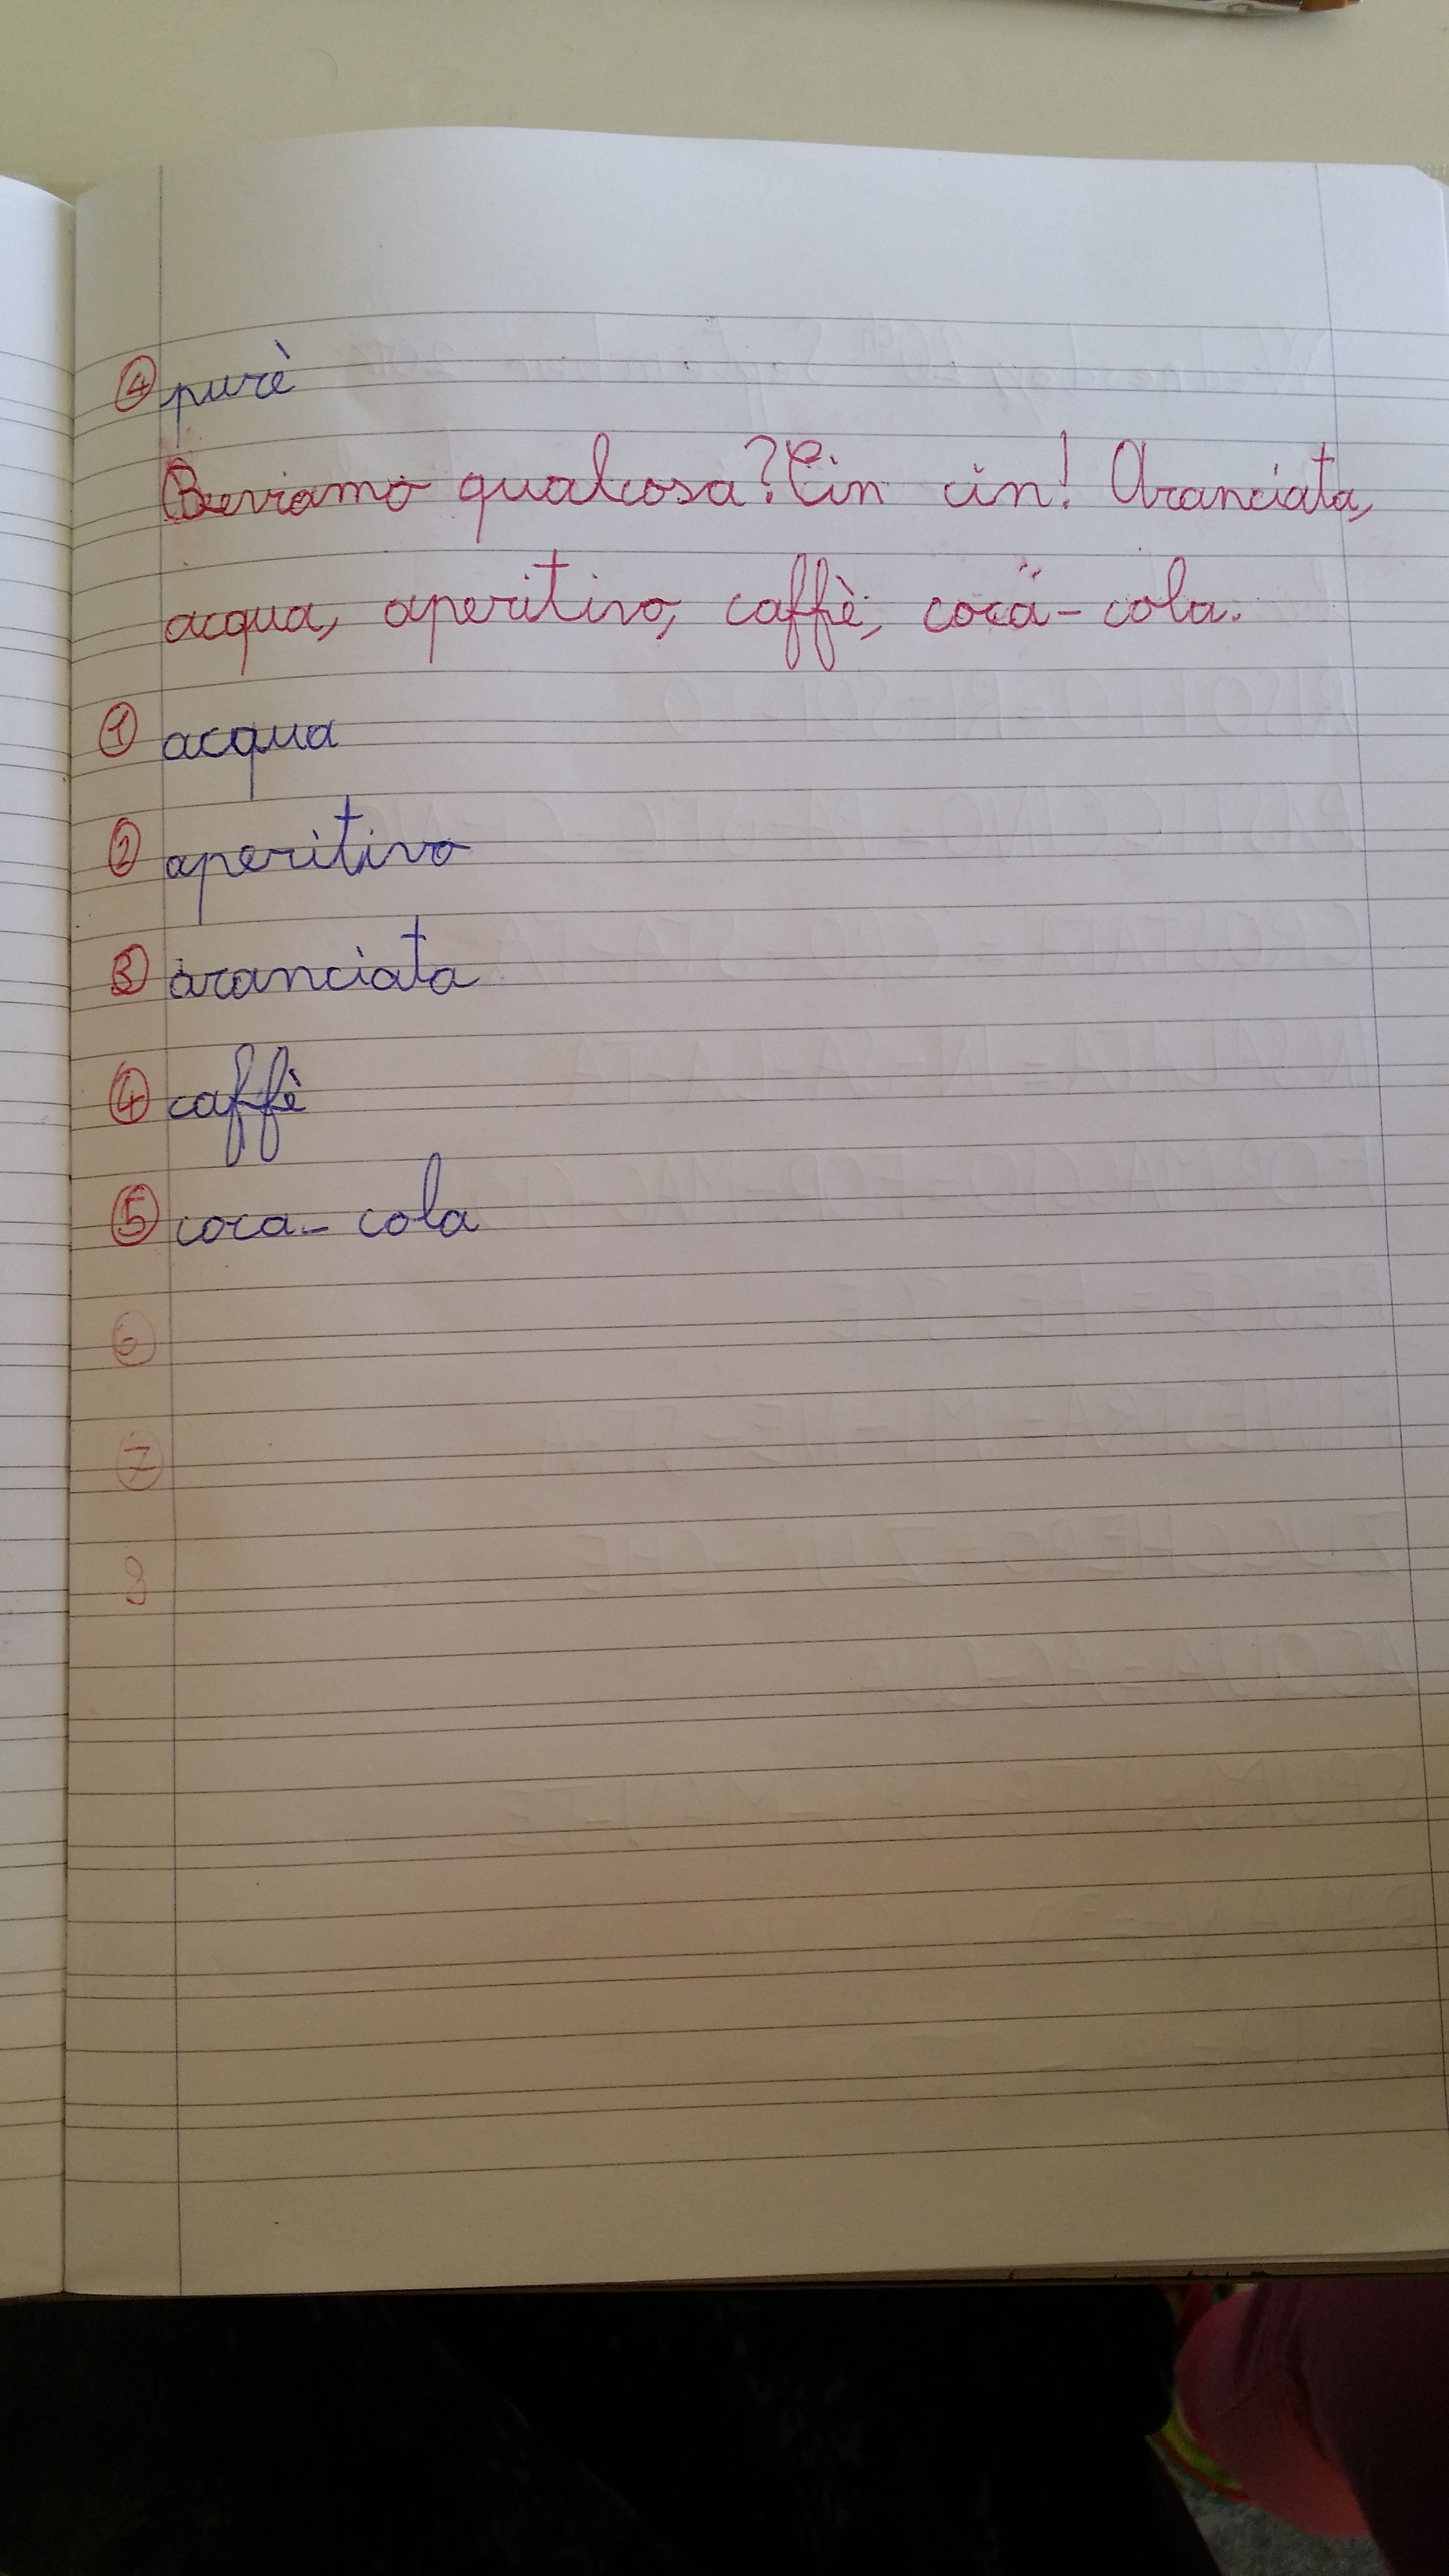 ④ purè
Beviamo qualcosa? Cin cin! Aranciata,
acqua, aperitivo, caffè, coca-cola.
① acqua
② aperitivo
③ aranciata
④ caffè
⑤ coca-cola
⑥
⑦
8